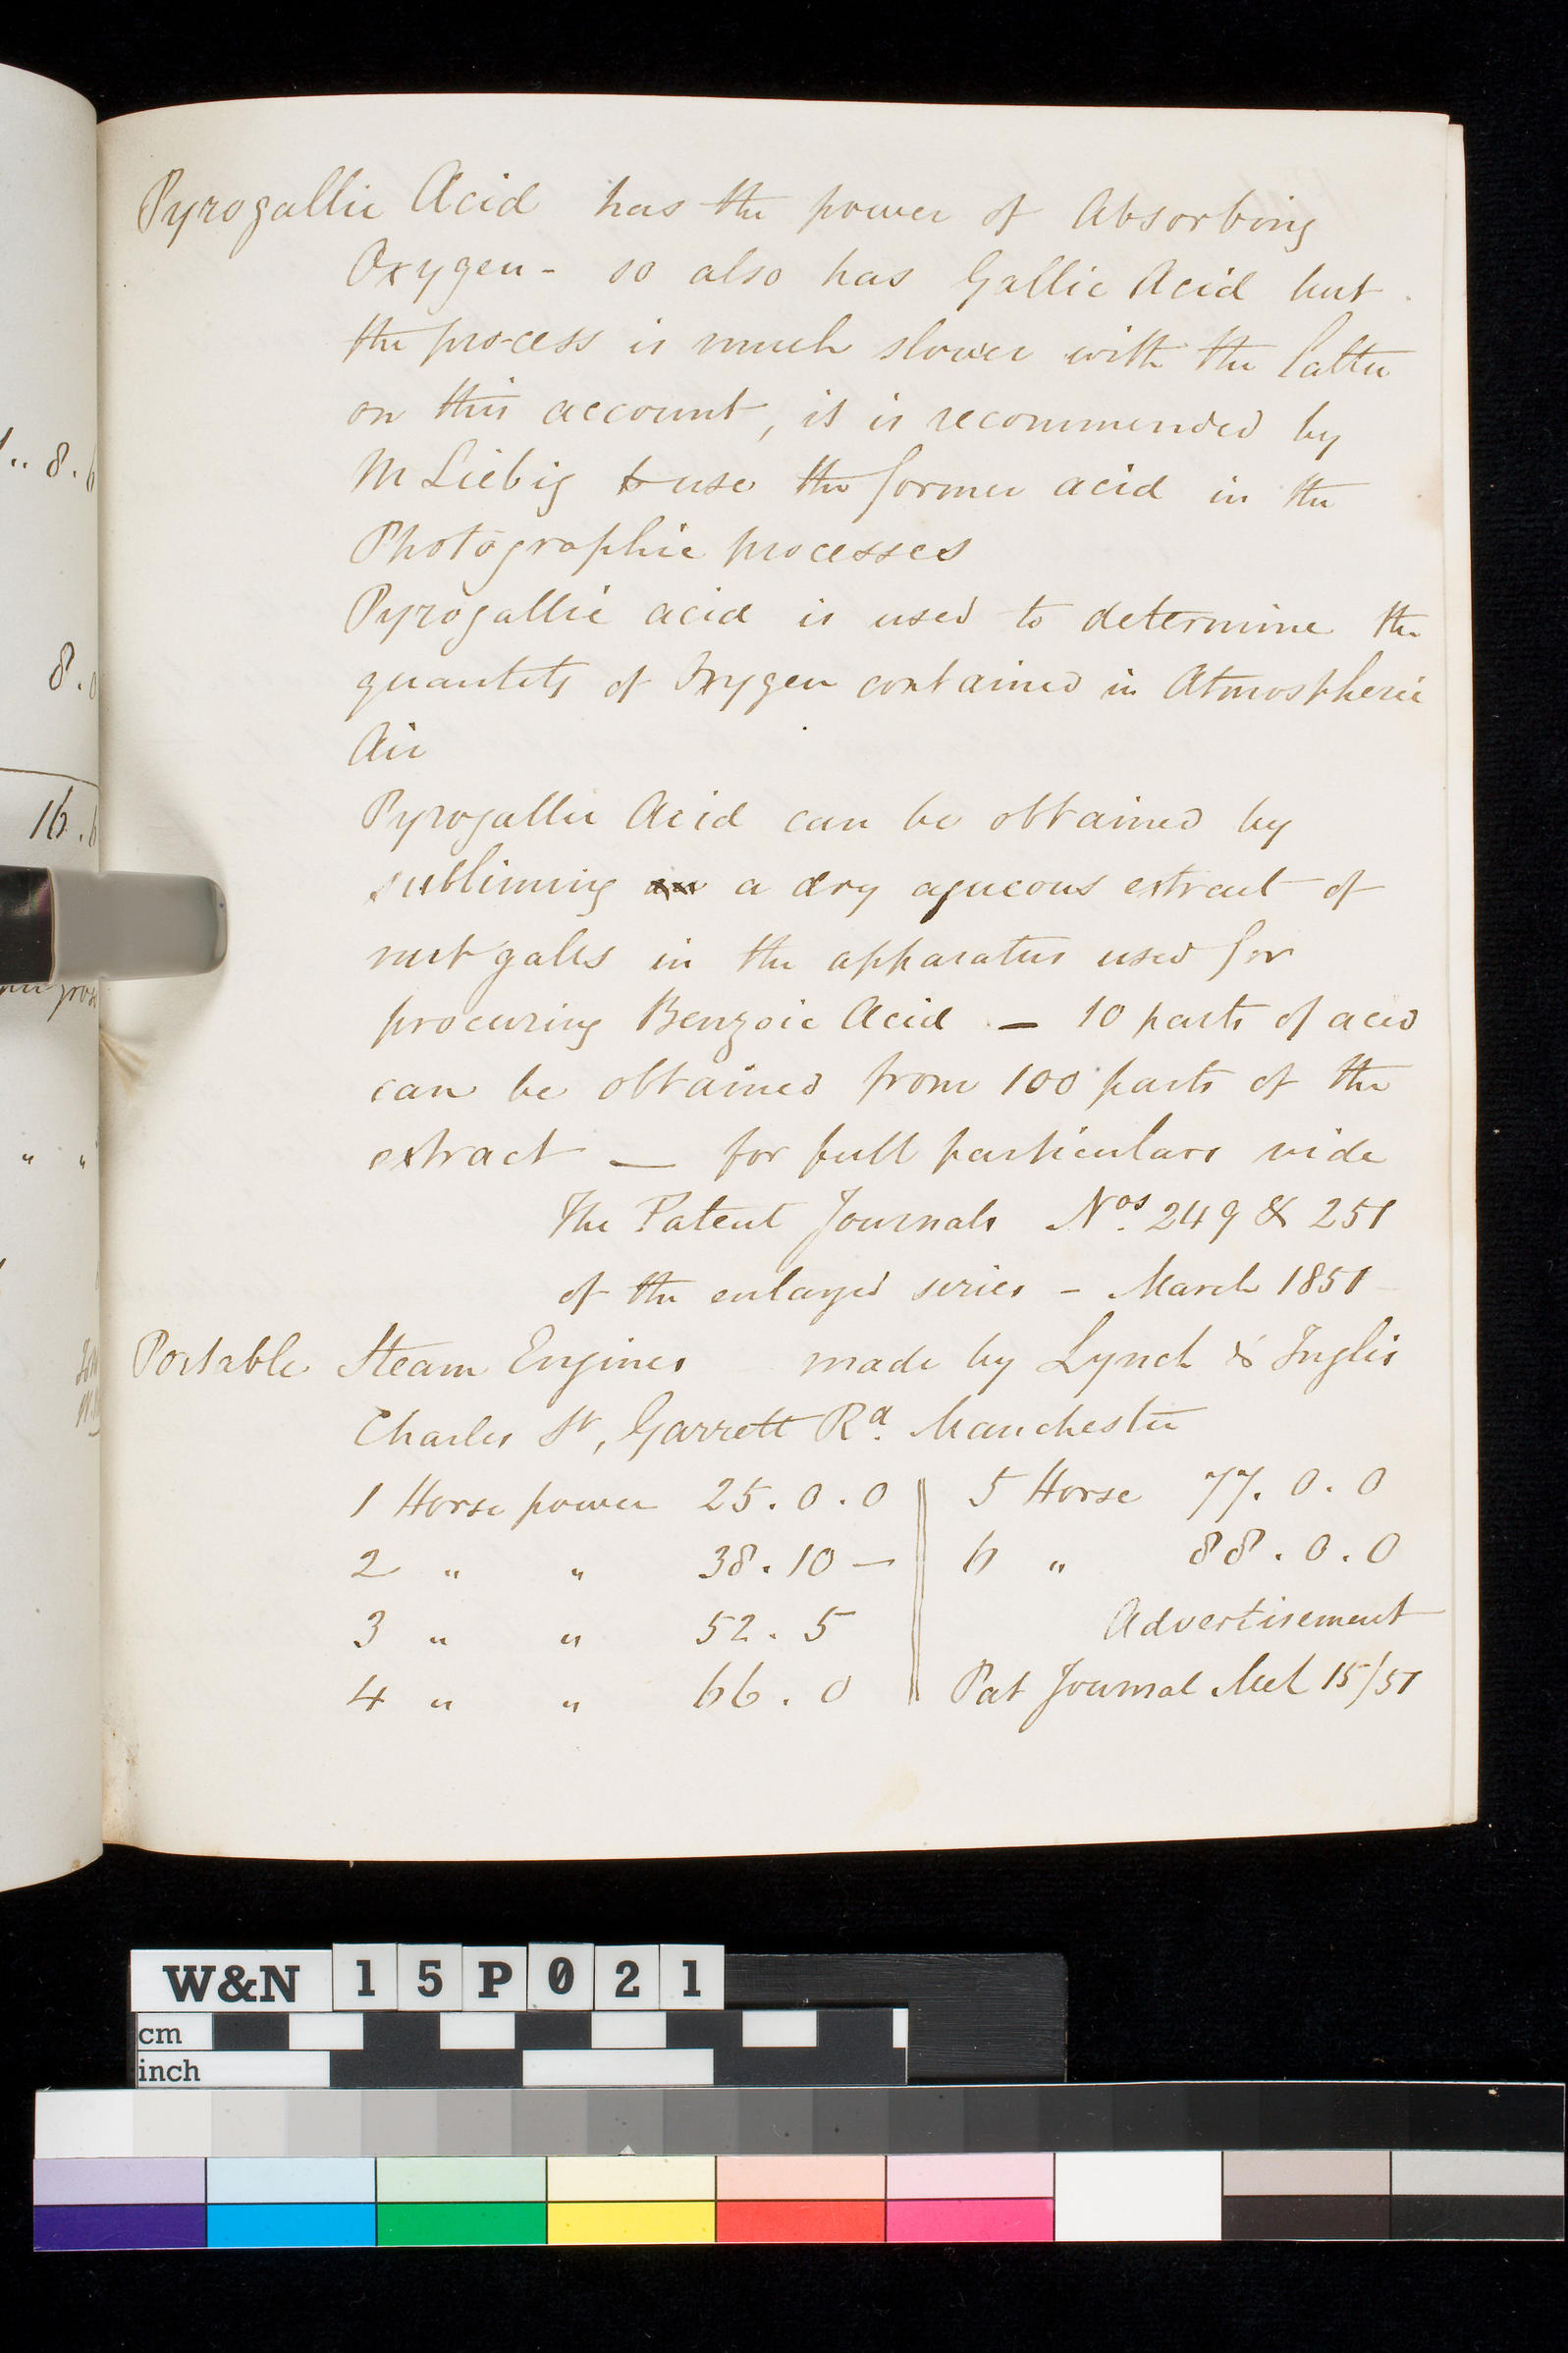 Pyrogallic Acid has the power of Absorbing
Oxygen - so also has Gallic Acid but
the process is much slower with the latter
on this account, it is recommended by
M Liebig to use the former acid in the
Photographic processes
Pyrogallic acid is used to determine the
quantity of Oxygen contained in Atmospheric
Air
Pyrogallic Acid can be obtained by
subliming an a dry aqueous extract of
nut galls in the apparatus used for
procuring Benzoic Acid — 10 parts of acid
can be obtained from 100 parts of the
extract — for full particulars vide
The Patent Journals Nos. 249 & 251
of the enlarged series - March 1851
Portable Steam Engines made by Lynch & Inglis
Charles St, Garrett Rd. Manchester
1 Horse power 25.0.0 5 Horse 77.0.0
2 " " 38.10 — 6 " 88.0.0
3 " " 52.5 Advertisement
4 " " 66.0 Pat Journal Mch 15/51
8.
8.
16.
" "
W&N 15P021
cm
inch